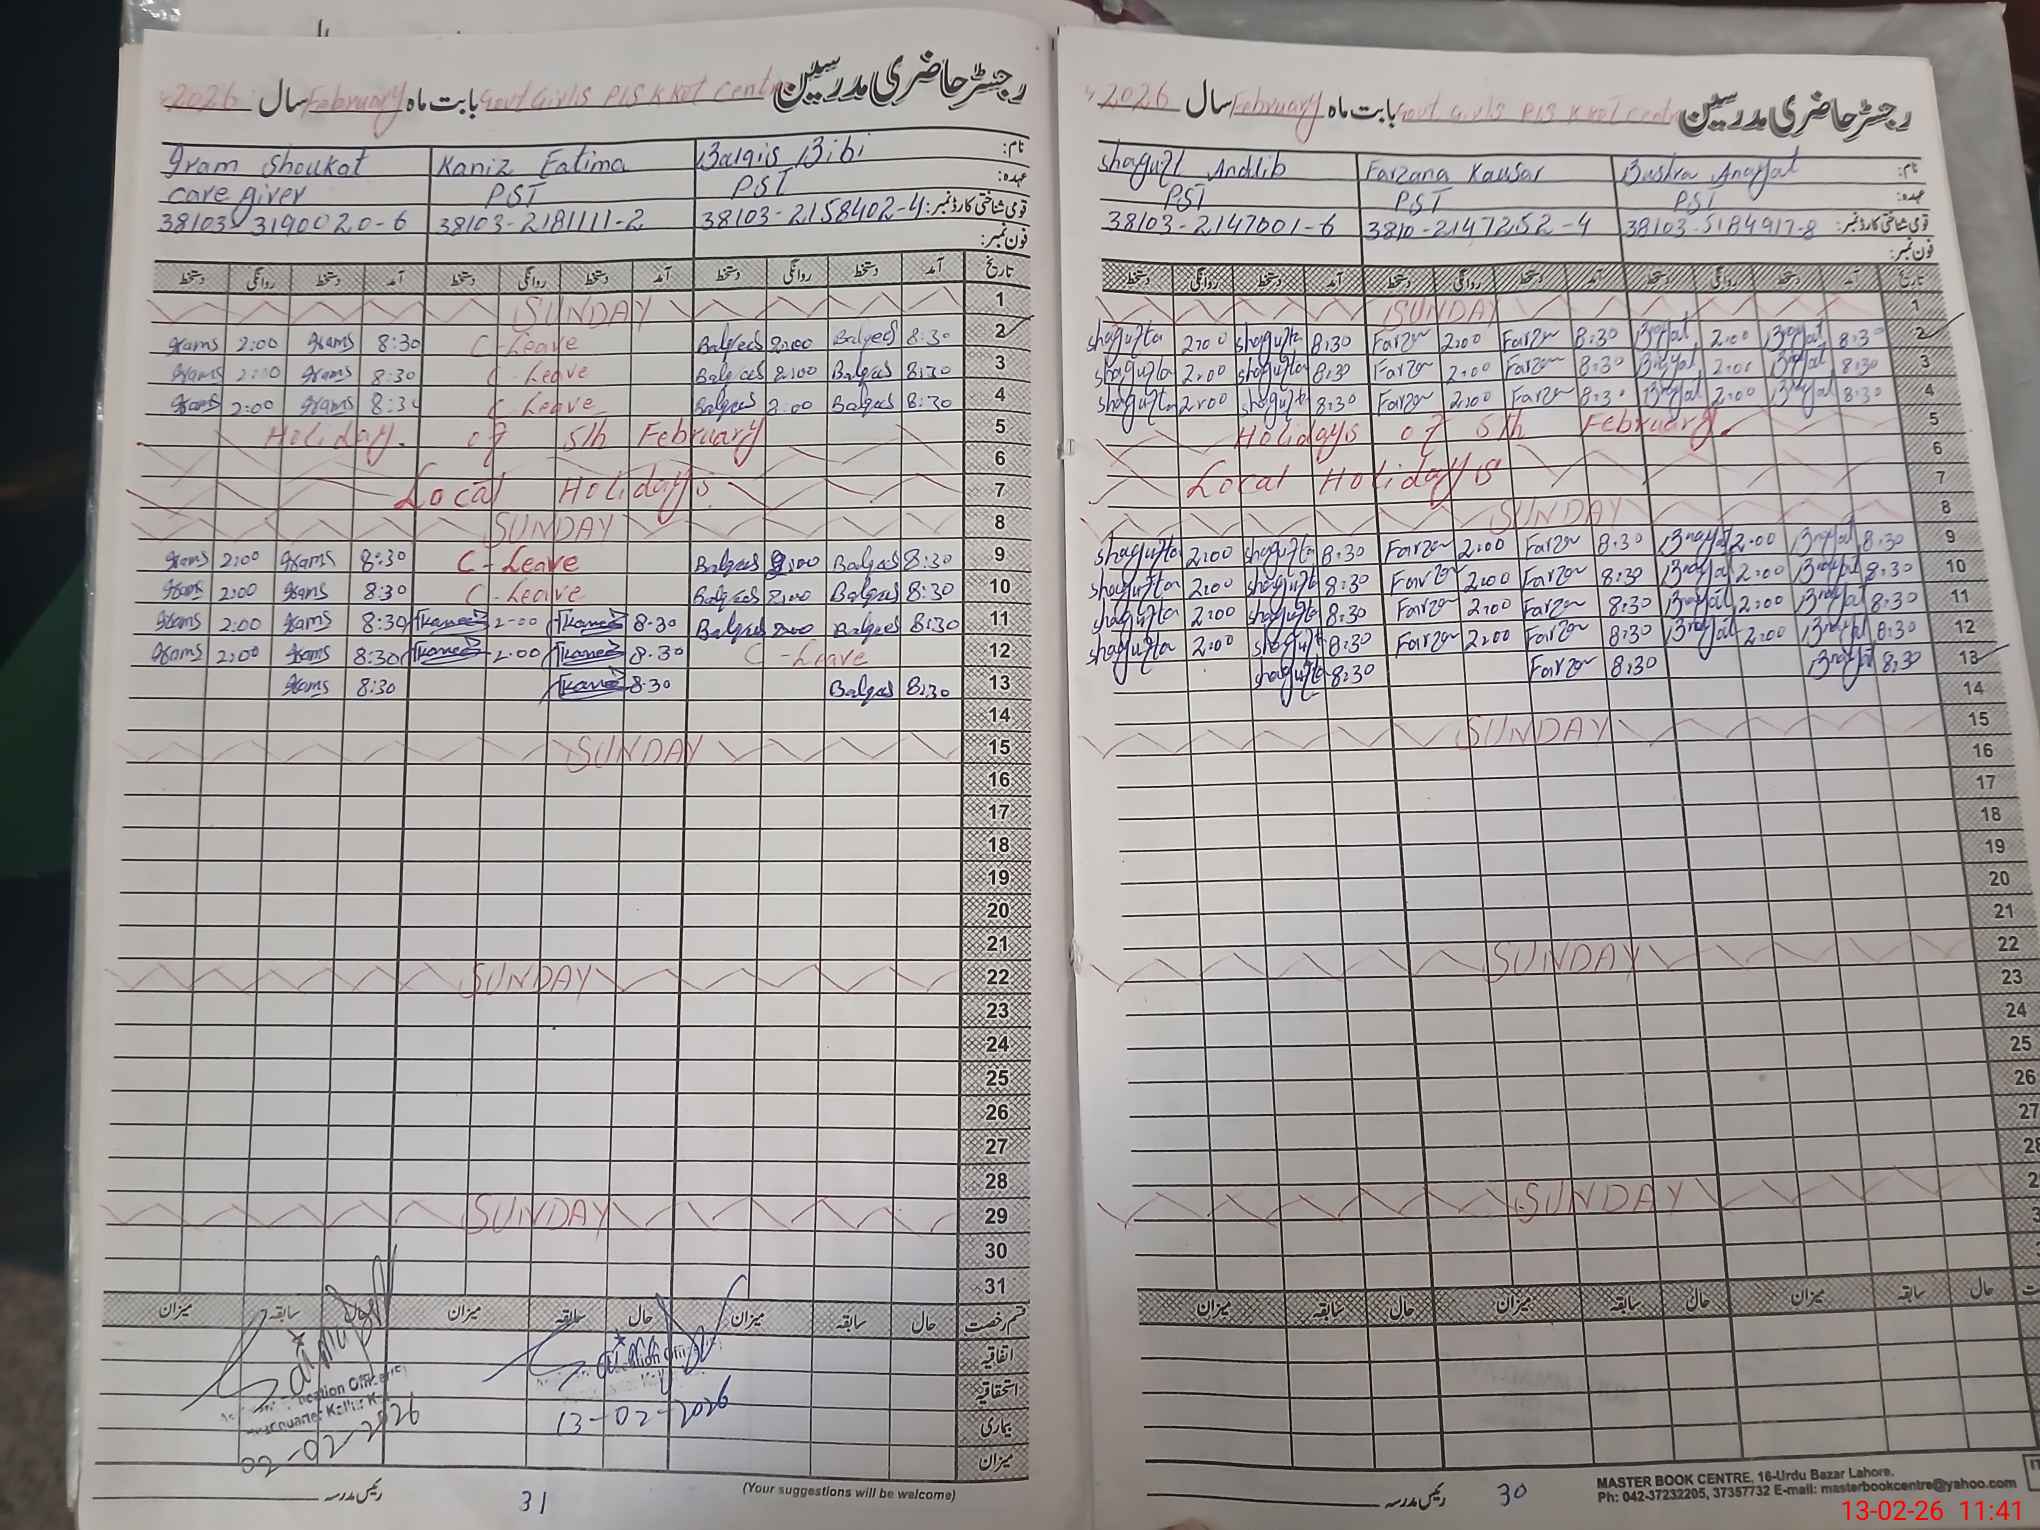 رجسٹر حاضری مدرسین Govt Girls P/S K Kot Centre بابت ماہ February سال 2026
نام: Balqis Bibi Kaniz Fatima Iram Shoukat
عہدہ: PST PST care giver
قومی شناختی کارڈ نمبر: 38103-2158402-4 38103-2181111-2 38103-3190020-6
فون نمبر:
تاریخ آمد دستخط روانگی دستخط آمد دستخط روانگی دستخط آمد دستخط روانگی دستخط
1 SUNDAY
2 8:30 Balqees 2:00 Balqees C-Leave 8:30 Irams 2:00 Irams
3 8:30 Balqees 2:00 Balqees C-Leave 8:30 Irams 2:00 Irams
4 8:30 Balqees 2:00 Balqees C-Leave 8:30 Irams 2:00 Irams
5 Holiday of 5th February
6
7 Local Holidays
8 SUNDAY
9 8:30 Balqees 2:00 Balqees C-Leave 8:30 Irams 2:00 Irams
10 8:30 Balqees 2:00 Balqees C-Leave 8:30 Irams 2:00 Irams
11 8:30 Balqees 2:00 Balqees 8:30 Kaneez 2:00 Kaneez 8:30 Irams 2:00 Irams
12 C-Leave 8:30 Kaneez 2:00 Kaneez 8:30 Irams 2:00 Irams
13 8:30 Balqees 8:30 Kaneez 8:30 Irams
14
15 SUNDAY
16
17
18
19
20
21
22 SUNDAY
23
24
25
26
27
28
29 SUNDAY
30
31
قسم رخصت حال سابقہ میزان حال سابقہ میزان سابقہ میزان
اتفاقیہ
استحقاقیہ
بیماری
میزان
Education Officer
Headquarter Kallur Kot
02-02-2026
Education Officer
13-02-2026
رئیس مدرسہ
31
(Your suggestions will be welcome)
رجسٹر حاضری مدرسین Govt Girls P/S K Kot Centre بابت ماہ February سال 2026
نام: Bushra Anayat Farzana Kausar Shagufta Andlib
عہدہ: PST PST PST
قومی شناختی کارڈ نمبر: 38103-5184917-8 3810-2147252-4 38103-2147001-6
فون نمبر:
تاریخ آمد دستخط روانگی دستخط آمد دستخط روانگی دستخط آمد دستخط روانگی دستخط
1 SUNDAY
2 8:30 2:00 8:30 Farzan 2:00 Farzan 8:30 shagufta 2:00 shagufta
3 8:30 2:00 8:30 Farzan 2:00 Farzan 8:30 shagufta 2:00 shagufta
4 8:30 2:00 8:30 Farzan 2:00 Farzan 8:30 shagufta 2:00 shagufta
5 Holidays of 5th February.
6
7 Local Holidays
8 SUNDAY
9 8:30 2:00 8:30 Farzan 2:00 Farzan 8:30 shagufta 2:00 shagufta
10 8:30 2:00 8:30 Farzan 2:00 Farzan 8:30 shagufta 2:00 shagufta
11 8:30 2:00 8:30 Farzan 2:00 Farzan 8:30 shagufta 2:00 shagufta
12 8:30 2:00 8:30 Farzan 2:00 Farzan 8:30 shagufta 2:00 shagufta
13 8:30 8:30 Farzan 8:30 shagufta
14
15 SUNDAY
16
17
18
19
20
21
22 SUNDAY
23
24
25
26
27
28
SUNDAY
حال سابقہ میزان حال سابقہ میزان حال سابقہ میزان
رئیس مدرسہ
30
MASTER BOOK CENTRE, 16-Urdu Bazar Lahore.
Ph: 042-37232205, 37357732 E-mail: masterbookcentre@yahoo.com
13-02-26 11:41